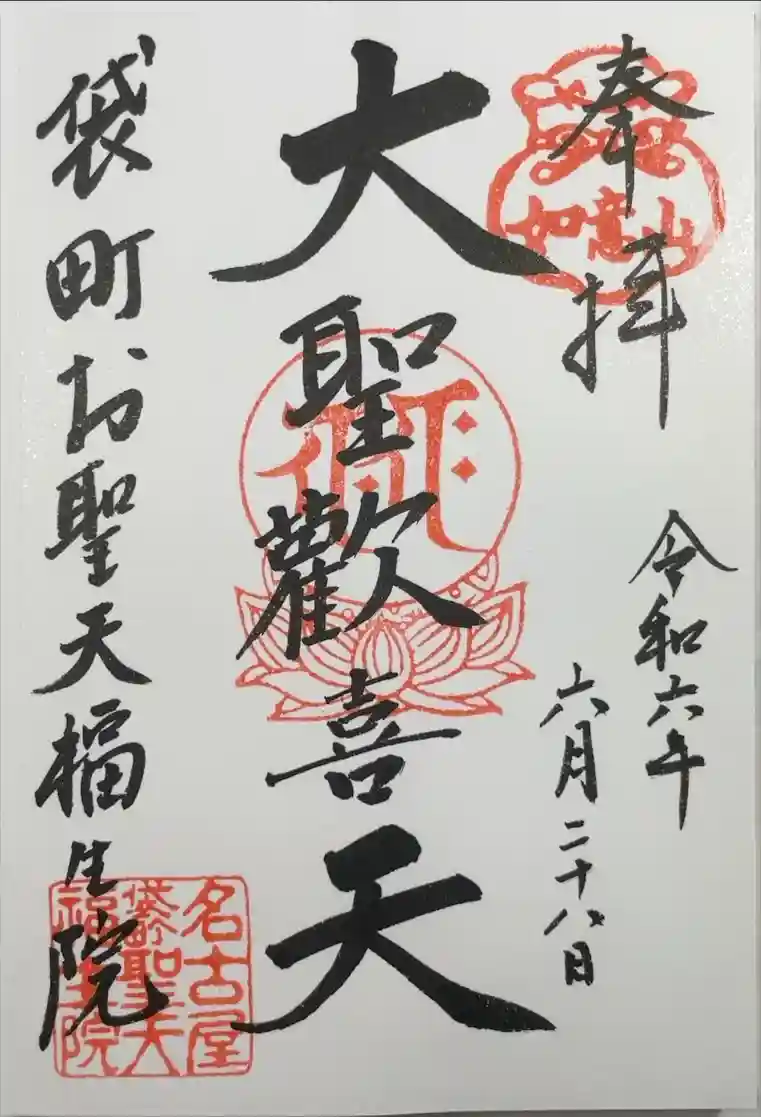 奉拝
如意山
令和六年
六月二十八日
大聖歡喜天
袋町お聖天福生院
名古屋
袋町聖天
福生院